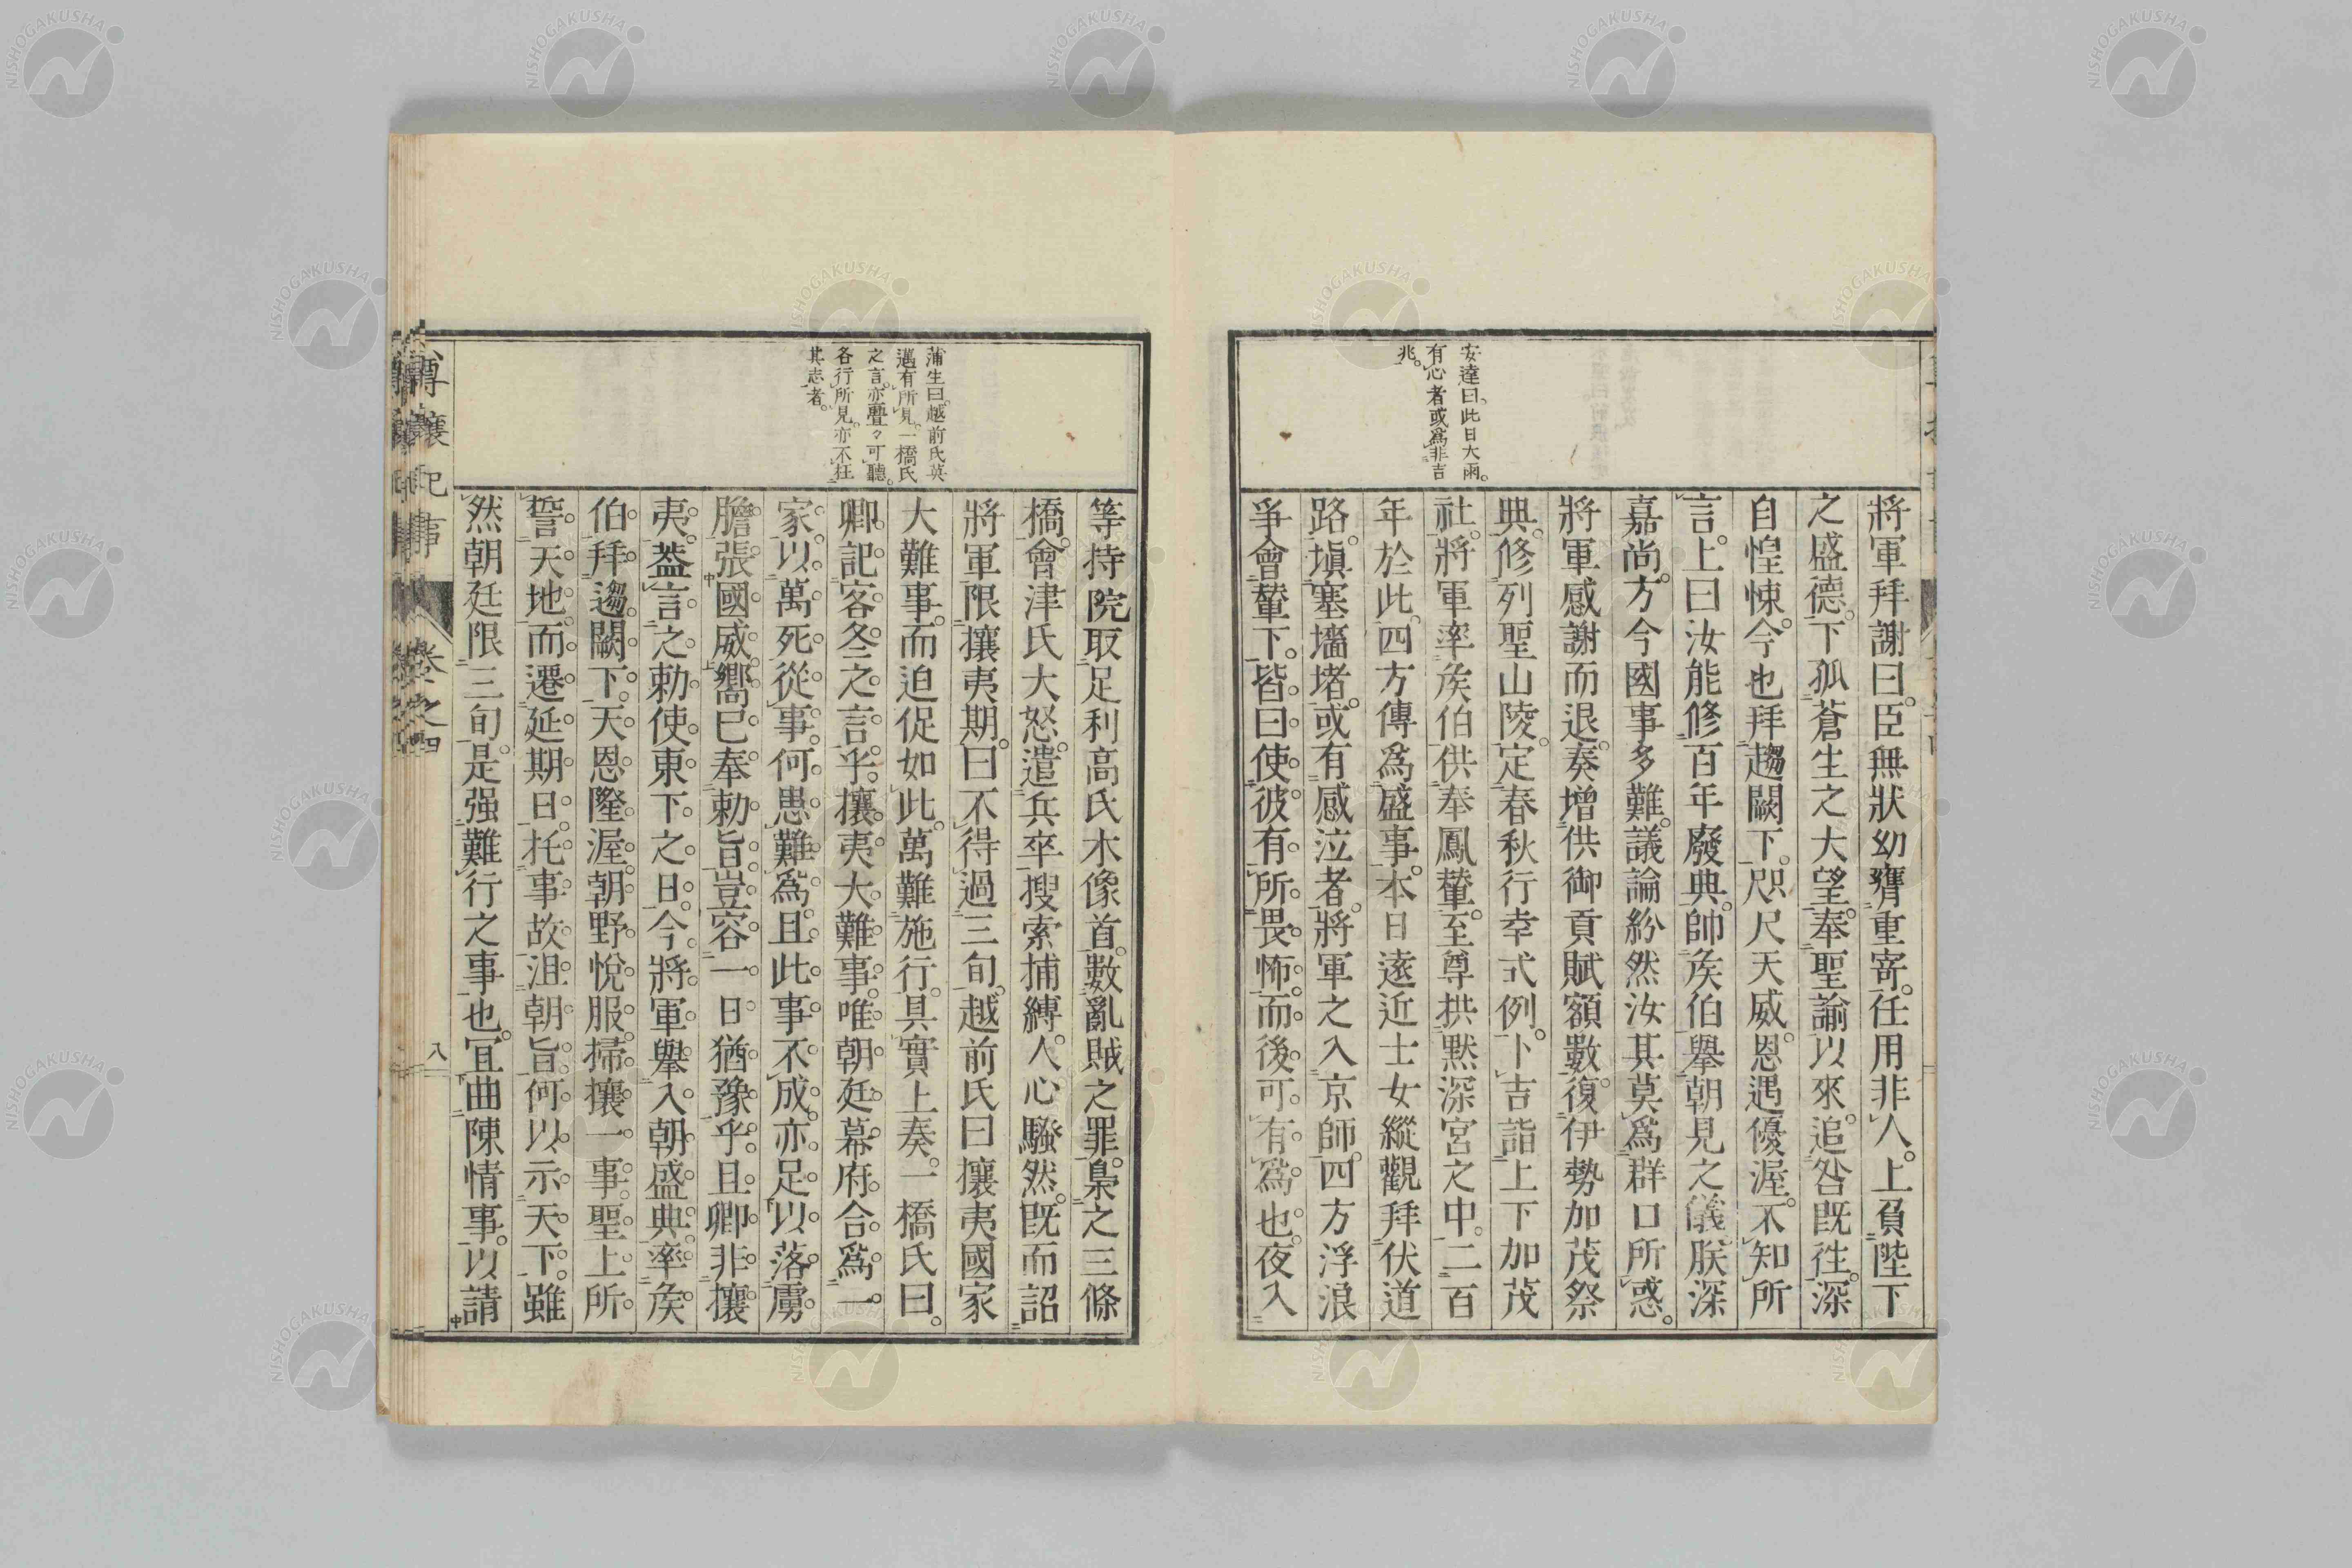 安達曰。此日大雨。
有心者或爲非吉
兆。
將軍拜謝曰。臣無狀幼膺重寄。任用非人。上負陛下
之盛德。下孤蒼生之大望。奉聖諭以來。追咎既往。深
自惶悚。今也拜趨闕下。咫尺天威。恩遇優渥。不知所
言。上曰汝能修百年廢典。帥矦伯擧朝見之儀。朕深
嘉尚。方今國事多難。議論紛然汝其莫爲群口所惑。
將軍感謝而退。奏增供御貢賦額數。復伊勢加茂祭
典。修列聖山陵。定春秋行幸式例。卜吉詣上下加茂
社。將軍率矦伯供奉鳳輦。至尊拱默深宮之中。二百
年於此。四方傳爲盛事。本日遠近士女縱觀拜伏道
路。塡塞墻堵。或有感泣者。將軍之入京師。四方浮浪
爭會輦下。皆曰。使彼有所畏怖。而後可有爲也。夜入
蒲生曰。越前氏英
邁有所見。一橋氏
之言。亦亹々可聽。
各行所見。亦不枉
其志者。
等持院取足利高氏木像首。數亂賊之罪。梟之三條
橋。會津氏大怒。遣兵卒搜索捕縛。人心騷然。既而詔
將軍限攘夷期。曰不得過三旬。越前氏曰攘夷國家
大難事。而迫促如此。萬難施行。具實上奏。一橋氏曰。
卿記客冬之言乎。攘夷大難事。唯朝廷幕府合爲一
家。以萬死從事。何患難爲。且此事不成。亦足以落虜
膽張國威。嚮已奉勅旨。豈容一日猶豫乎。且卿非攘
夷。葢言之勅使東下之日。今將軍擧入朝盛典。率矦
伯拜趨闕下。天恩隆渥。朝野悅服。掃攘一事。聖上所
誓天地。而遷延期日。托事故。沮朝旨。何以示天下。雖
然朝廷限三旬。是强難行之事也。宜曲陳情事。以請
尊攘紀事
卷之四
八
NISHOGAKUSHA